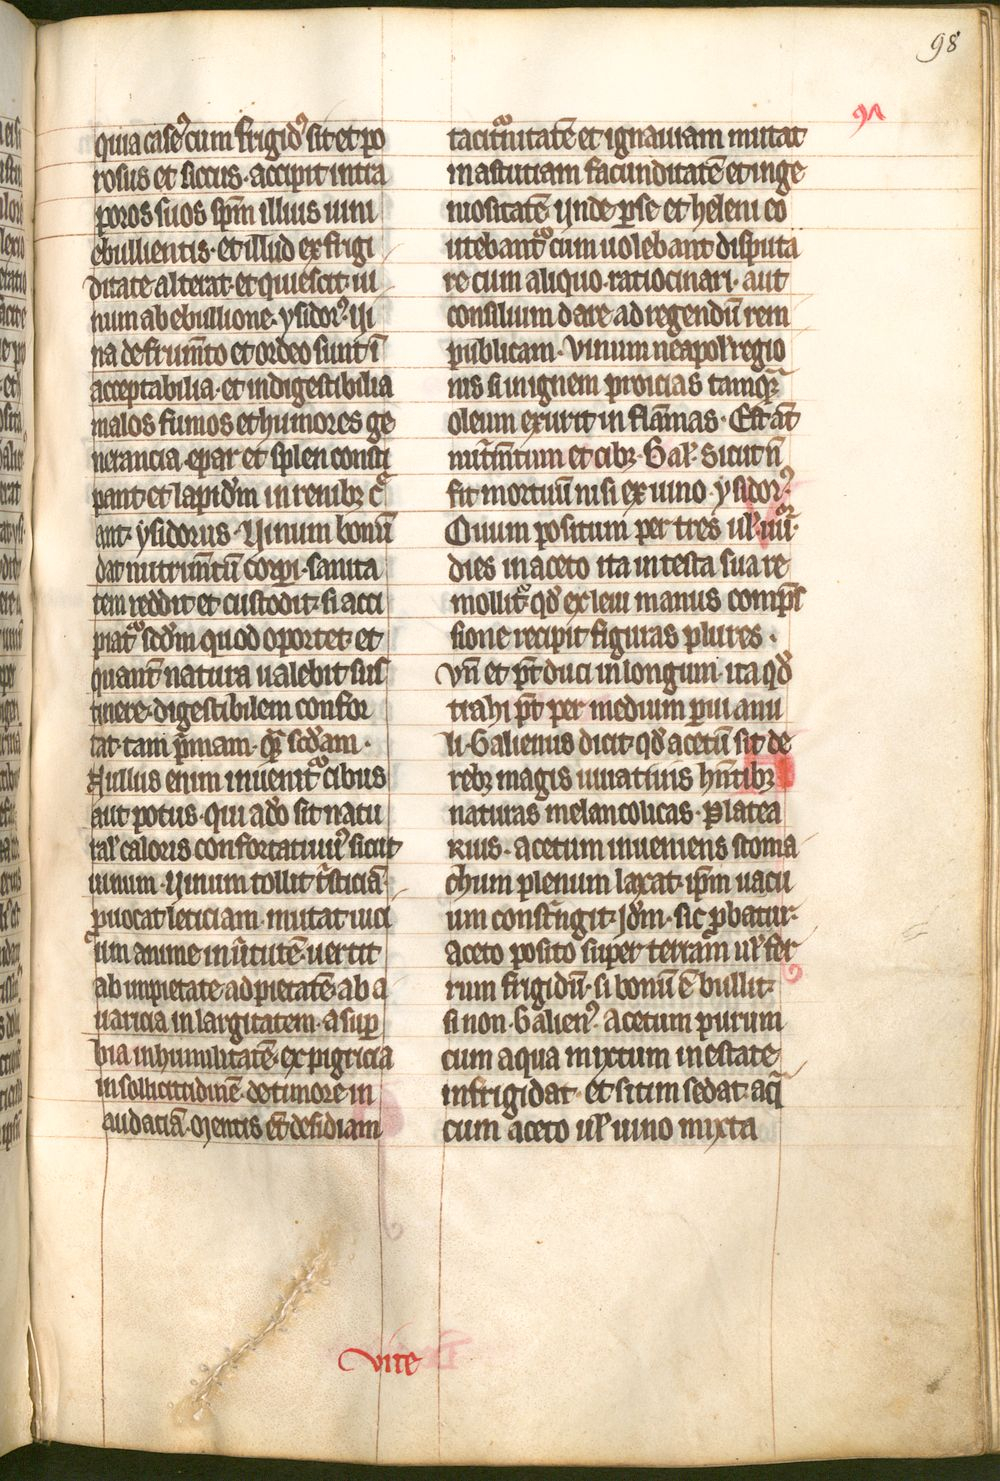 98
91
quia case9 cum frigid9 sit et po
rosus et siccus· accipit intra
poros suos sp̄m illius uini
ebullientis· et illud ex frigi
ditate alterat· et quiescit ui
num ab ebullione· ysidor9· Ui
na de frum̄to et ordeo sunt ī
acceptabilia· et indigestibilia
malos fumos et humores ge
nerancia· epar et splen consti
pant et lapid'm in renibꝫ c̄
ant· ysidorus· Uinum bonū
dat nutrim̄tū corpi· sanita
tem reddit et custodit· si acci
piat͛ scd'm quod oportet· et
quant̄ natura ualebit sus
tinere· digestibilem confor
tat· tam p̄mam· qᷓ scd'am·
Nullus enim inuenit͛ cibus
aut potus· qui ad'o sit natu
ral' caloris confortatiuu9 sicut
uinum· Uinum tollit t̄sticiā·
ꝓuocat leticiam· mutat uici
um anime in ūtutē· uertit
ab impietate ad pietatē· ab a
uaricia in largitatem· a suꝑ
bia in humilitatē· ex pigricia
in sollicitudinē· de timore in
audaciā· Mentis eī desidiam
tacit͛nitatē et ignauiam mutat
in astutiam facunditatē et inge
niositatē Unde ꝑse et heleni eo
utebant͛ cum uolebant disputa
re cum aliquo· ratiocinari· aut
consilium dare ad regendū rem
publicam· Vinum neapol' regio
nis si in ignem proicias tamqᷓ
oleum exurit in flāmas· Est āt
nut̄m̄tum et cibꝫ· Gal'· Sicut n̄
fit mortuū nisi ex uino· ysidor9·
Ouum positum per tres ul' iiiiᵒʳ
dies in aceto ita in testa sua re
mollit͛ qd' ex leui manus comp̄s
sione recipit figuras plures·
Vn̄ et p̄t duci in longum· ita qd'
trahi p̄t per medium ꝑui anu
li· Galienus dicit qd' acetū sit de
rebꝫ magis iuuatiuis hn̄tibꝫ
naturas melancolicas· Platea
rius· acetum inueniens stoma
chum plenum laxat· ip̄m uacu
um const̄ngit· Id'm· sic ꝓbatur·
aceto posito super terram ul' fer
rum frigidū· si bonū ē bullit·
si non· Galien9· Acetum purum
cum aqua mixtum in estate
infrigidat· et sitim sedat· aq̄
cum aceto ul' uino mixta
vite